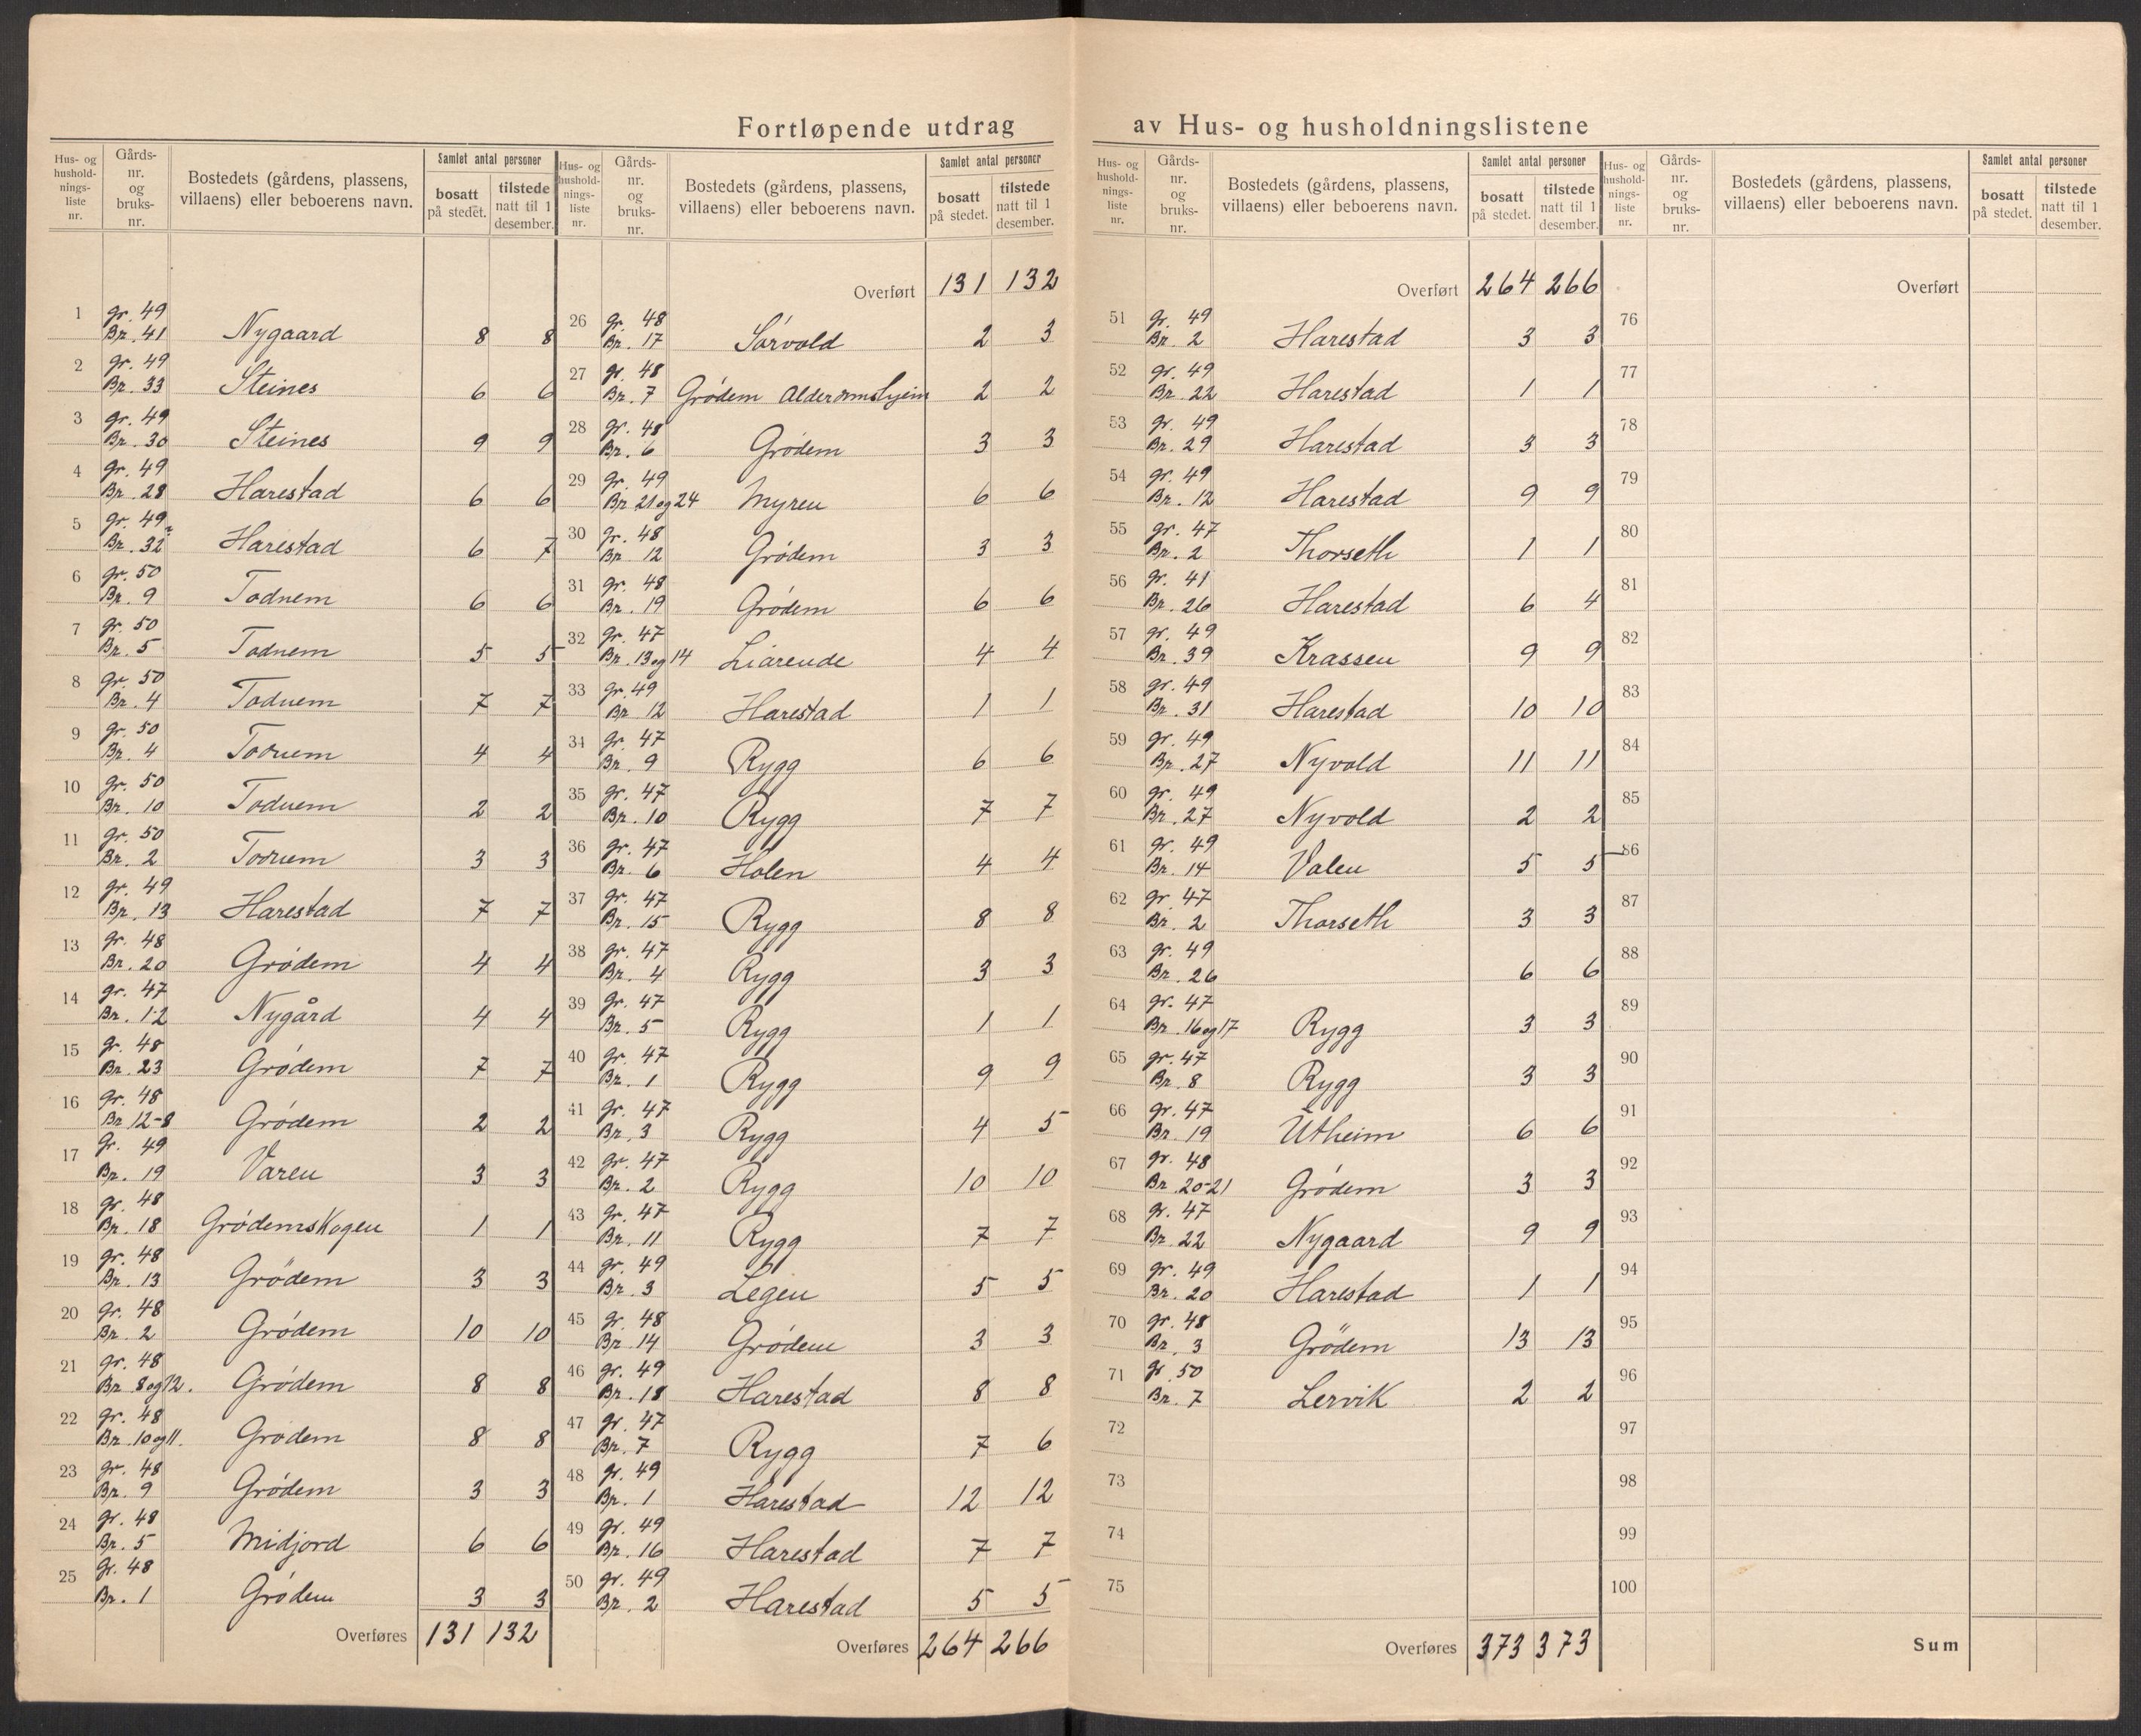 Fortløpende utdrag av Hus- og husholdningslistene
Hus- og husholdnings-liste nr. | Gårds-nr. og bruks-nr. | Bostedets (gårdens, plassens, villaens) eller beboerens navn. | Samlet antal personer | bosatt på stedet. | tilstede natt til 1 desember.
1 gr. 49 Br. 41 Nygaard 8 8
2 gr. 49 Br. 33 Steines 6 6
3 gr. 49 Br. 30 Steines 9 9
4 gr. 49 Br. 28 Harestad 6 6
5 gr. 49 Br. 32 Harestad 6 7
6 gr. 50 Br. 9 Todnem 6 6
7 gr. 50 Br. 5 Todnem 5 5
8 gr. 50 Br. 4 Todnem 7 7
9 gr. 50 Br. 4 Todnem 4 4
10 gr. 50 Br. 10 Todnem 2 2
11 gr. 50 Br. 2 Todnem 3 3
12 gr. 49 Br. 13 Harestad 7 7
13 gr. 48 Br. 20 Grødem 4 4
14 gr. 47 Br. 12 Nygård 4 4
15 gr. 48 Br. 23 Grødem 7 7
16 gr. 48 Br 12-8 Grødem 2 2
17 gr. 49 Br. 19 Varen 3 3
18 gr. 48 Br. 18 Grødemskogen 1 1
19 gr. 48 Br. 13 Grödem 3 3
20 gr. 48 Br. 2 Grødem 10 10
21 gr. 48 Br. 8 og 12. Grødem 8 8
22 gr. 48 Br. 10 og 11. Grødem 8 8
23 gr. 48 Br. 9 Grødem 3 3
24 gr. 48 Br. 5 Midjord 6 6
25 gr. 48 Br. 1 Grødem 3 3
Overføres 131 132
Hus- og husholdnings-liste nr. | Gårds-nr. og bruks-nr. | Bostedets (gårdens, plassens, villaens) eller beboerens navn. | Samlet antal personer | bosatt på stedet. | tilstede natt til 1 desember.
Overført 131 132
26 gr. 48 Br. 17 Sørvold 2 3
27 gr. 48 Br. 7 Grødem 2 2
28 gr. 48 Br. 6 Grødem 3 3
29 gr. 49 Br 21 og 24 Myren 6 6
30 gr. 48 Br. 12 Grødem 3 3
31 gr. 48 Br. 19 Grødem 6 6
32 gr. 47 Br. 13 og 14 Liarende 4 4
33 gr. 49 Br 12 Harestad 1 1
34 gr. 47 Br. 9 Rygg 6 6
35 gr. 47 Br. 10 Rygg 7 7
36 gr. 47 Br. 6 Holen 4 4
37 gr. 47 Br. 15 Rygg 8 8
38 gr. 47 Br. 4 Rygg 3 3
39 gr. 47 Br. 5 Rygg 1 1
40 gr. 47 Br. 1 Rygg 9 9
41 gr. 47 Br. 3 Rygg 4 5
42 gr. 47 Br. 2 Rygg 10 10
43 gr. 47 Br. 11 Rygg 7 7
44 gr. 49 Br. 3 Legen 5 5
45 gr. 48 Br. 14 Grødem 3 3
46 gr. 49 Br. 18 Harestad 8 8
47 gr. 47 Br. 7 Rygg 7 6
48 gr. 49 Br. 1 Harestad 12 12
49 gr. 49 Br. 16 Harestad 7 7
50 gr. 49 Br. 2 Harestad 5 5
Overføres 264 266
Hus- og husholdnings-liste nr. | Gårds-nr. og bruks-nr. | Bostedets (gårdens, plassens, villaens) eller beboerens navn. | Samlet antal personer | bosatt på stedet. | tilstede natt til 1 desember.
Overført 264 266
51 gr. 49 Br. 2 Harestad 3 3
52 gr. 49 Br. 22 Harestad 1 1
53 gr. 49 Br. 29 Harestad 3 3
54 gr. 49 Br. 12 Harestad 9 9
55 gr. 47 Br. 2 Thorseth 1 1
56 gr. 41 Br. 26 Harestad 6 4
57 gr. 49 Br. 39 Krassen 9 9
58 gr. 49 Br. 31 Harestad 10 10
59 gr. 49 Br. 27 Nyvold 11 11
60 gr. 49 Br. 27 Nyvold 2 2
61 gr. 49 Br. 14 Valen 5 5
62 gr. 47 Br. 2 Thorseth 3 3
63 gr. 49 Br. 26 6 6
64 gr. 47 Br. 16 og 17 Rygg 3 3
65 gr. 47 Br. 8 Rygg 3 3
66 gr. 47 Br. 19 Utheim 6 6
67 gr. 48 Br. 20-21 Grødem 3 3
68 gr. 47 Br. 22 Nygaard 9 9
69 gr. 49 Br. 20 Harestad 1 1
70 gr. 48 Br. 3 Grödem 13 13
71 gr. 50 Br. 7 Lervik 2 2
72
73
74
75
Overføres 373 373
Hus- og husholdnings-liste nr. | Gårds-nr. og bruks-nr. | Bostedets (gårdens, plassens, villaens) eller beboerens navn. | Samlet antal personer | bosatt på stedet. | tilstede natt til 1 desember.
Overført
76
77
78
79
80
81
82
83
84
85
86
87
88
89
90
91
92
93
94
95
96
97
98
99
100
Sum